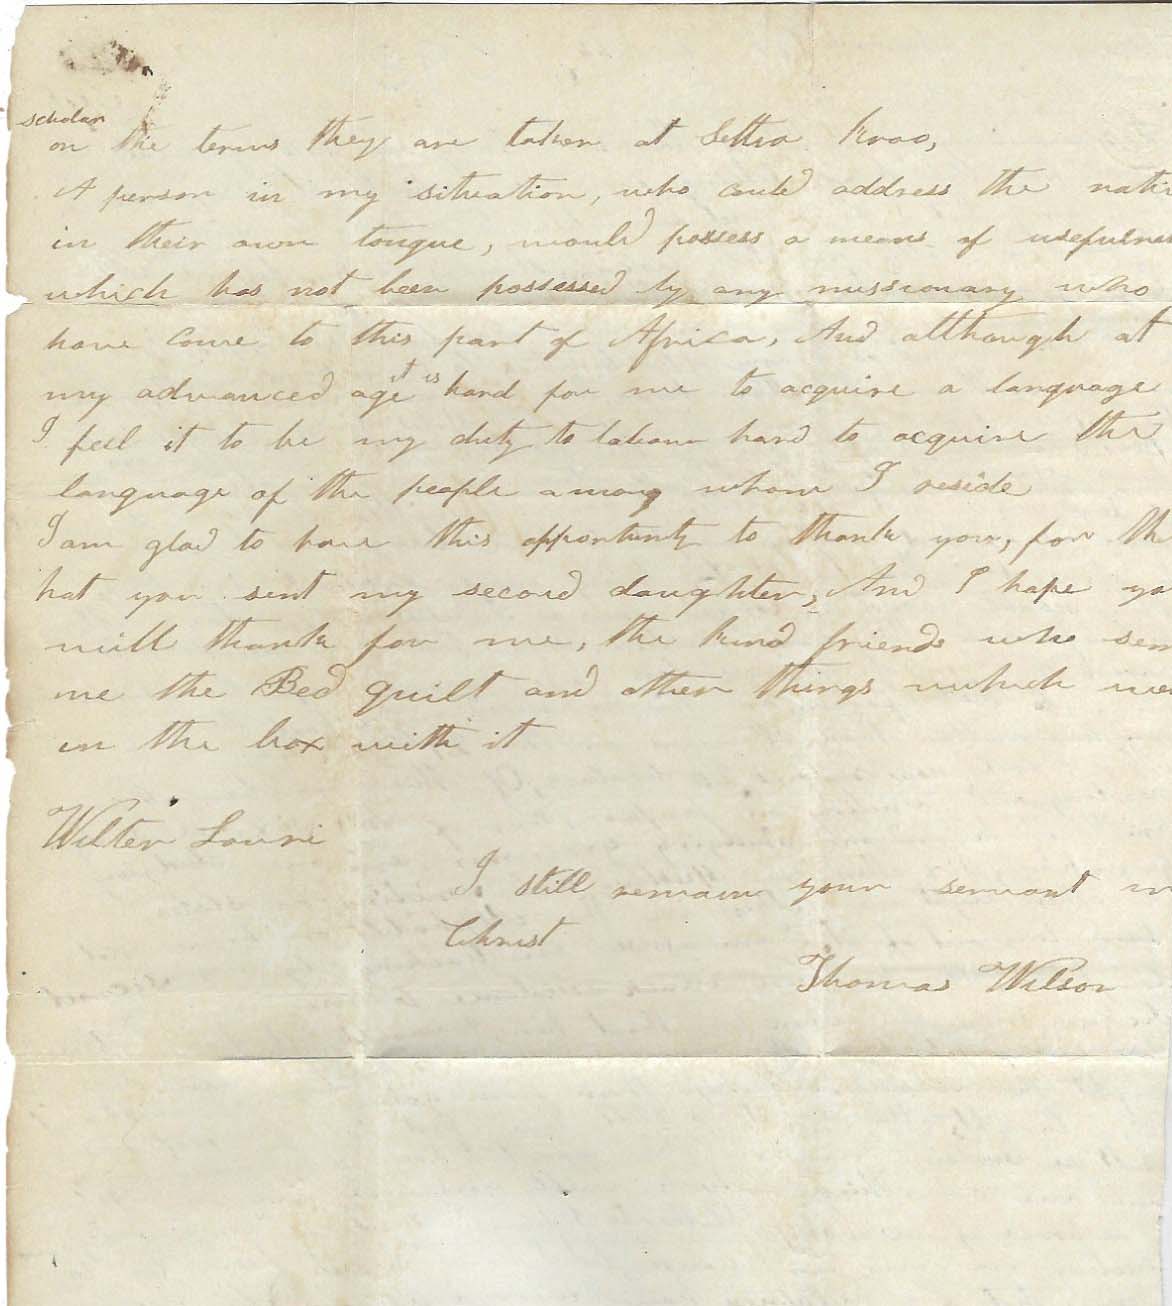 scholar
on the terms they are taken at Settra Kroo,
A person in my situation, who could address the nati
in their own tongue, would possess a means of usefulnes
which has not been possessed by any missionary who
have come to this part of Africa, And although at
my advanced age it is hard for me to acquire a language
I feel it to be my duty to labour hard to acquire the
language of the people among whom I reside
I am glad to have this opportunity to thank you, for th
hat you sent my second daughter, And I hope yo
will thank for me, the kind friends who sen
me the Bed quilt and other things which we
in the box with it
Wilter Lowri
I still remain your servant in
Christ
Thomas Wilson